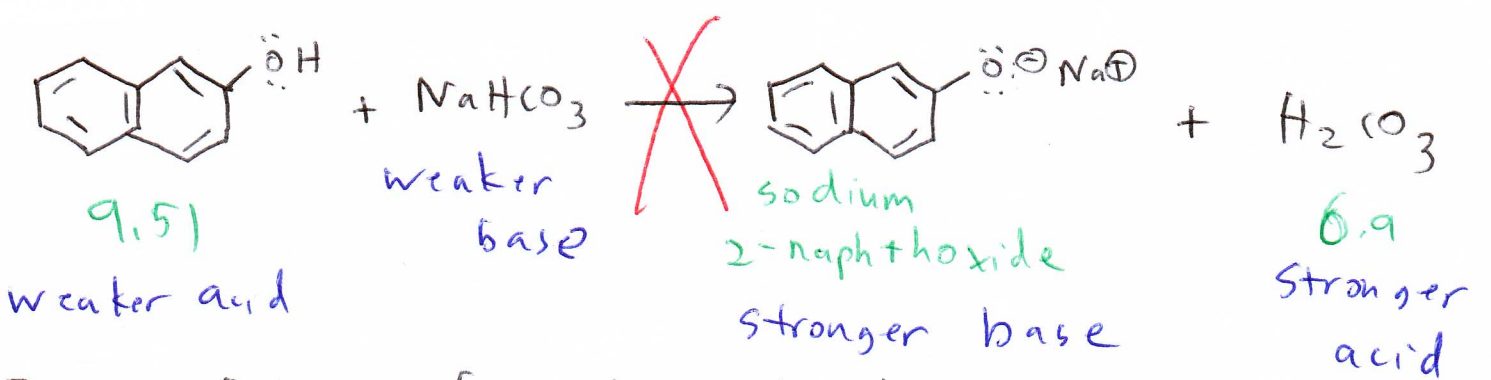 ÖH + NaHCO3 → Ö:⊖ Na⊕ + H2CO3
9.51
weaker acid
weaker
base
sodium
2-naphthoxide
stronger base
6.9
Stronger
acid